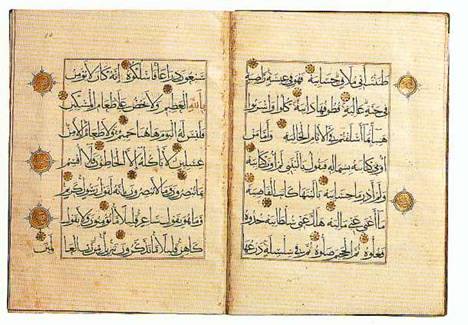 ظننت أني ملاق حسابيه فهو في عيشة راضية
في جنة عالية قطوفها دانية كلوا واشربوا
هنيئا بما أسلفتم في الأيام الخالية وأما من
أوتي كتابه بشماله فيقول يا ليتني لم أوت كتابيه
ولم أدر ما حسابيه يا ليتها كانت القاضية
ما أغنى عني ماليه هلك عني سلطانيه خذوه
فغلوه ثم الجحيم صلوه ثم في سلسلة ذرعها
سبعون ذراعا فاسلكوه إنه كان لا يؤمن
بالله العظيم ولا يحض على طعام المسكين
فليس له اليوم هاهنا حميم ولا طعام إلا من
غسلين لا يأكله إلا الخاطئون فلا أقسم
بما تبصرون وما لا تبصرون إنه لقول رسول كريم
وما هو بقول شاعر قليلا ما تؤمنون ولا بقول
كاهن قليلا ما تذكرون تنزيل من رب العا